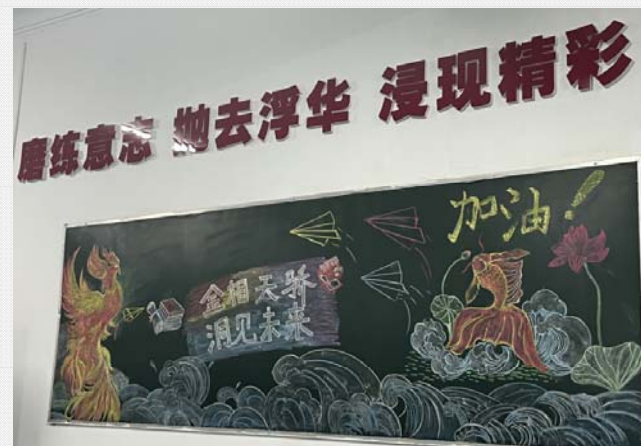 磨练意志 抛去浮华 浸现精彩
加油！
金相天骄
洞见未来